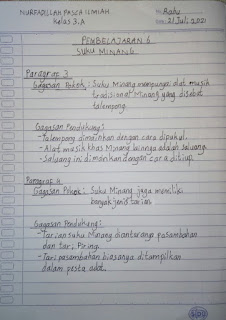 NURFADILLAH PASCA ILMIAH
Kelas 3.A
No: Rabu
Date: 21 Juli 2021
PEMBELAJARAN 6
SUKU MINANG
Paragraf 3
Gagasan Pokok : Suku Minang mempunyai alat musik
tradisional Minang yang disebut
talempong.
Gagasan Pendukung :
- Talempong dimainkan dengan cara dipukul.
- Alat musik khas Minang lainnya adalah Saluang.
- Saluang ini dimainkan dengan cara ditiup.
Paragraf 4
Gagasan Pokok : Suku Minang juga memiliki
banyak jenis tarian.
Gagasan Pendukung :
- Tarian suku Minang diantaranya pasambahan
dan tari Piring.
- Tari pasambahan biasanya ditampilkan
dalam pesta adat.